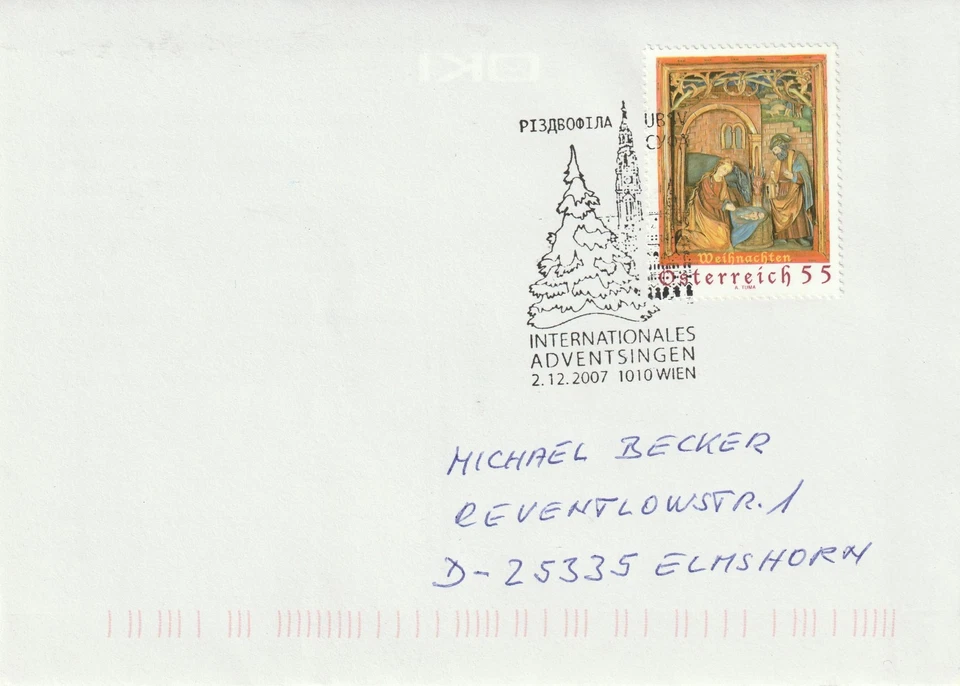 OKI
РІЗДВОФІЛА UBSV
СУФА
Weihnachten
Österreich 55
A. TUMA
INTERNATIONALES
ADVENTSINGEN
2.12.2007 1010 WIEN
MICHAEL BECKER
REVENTLOWSTR. 1
D-25335 ELMSHORN